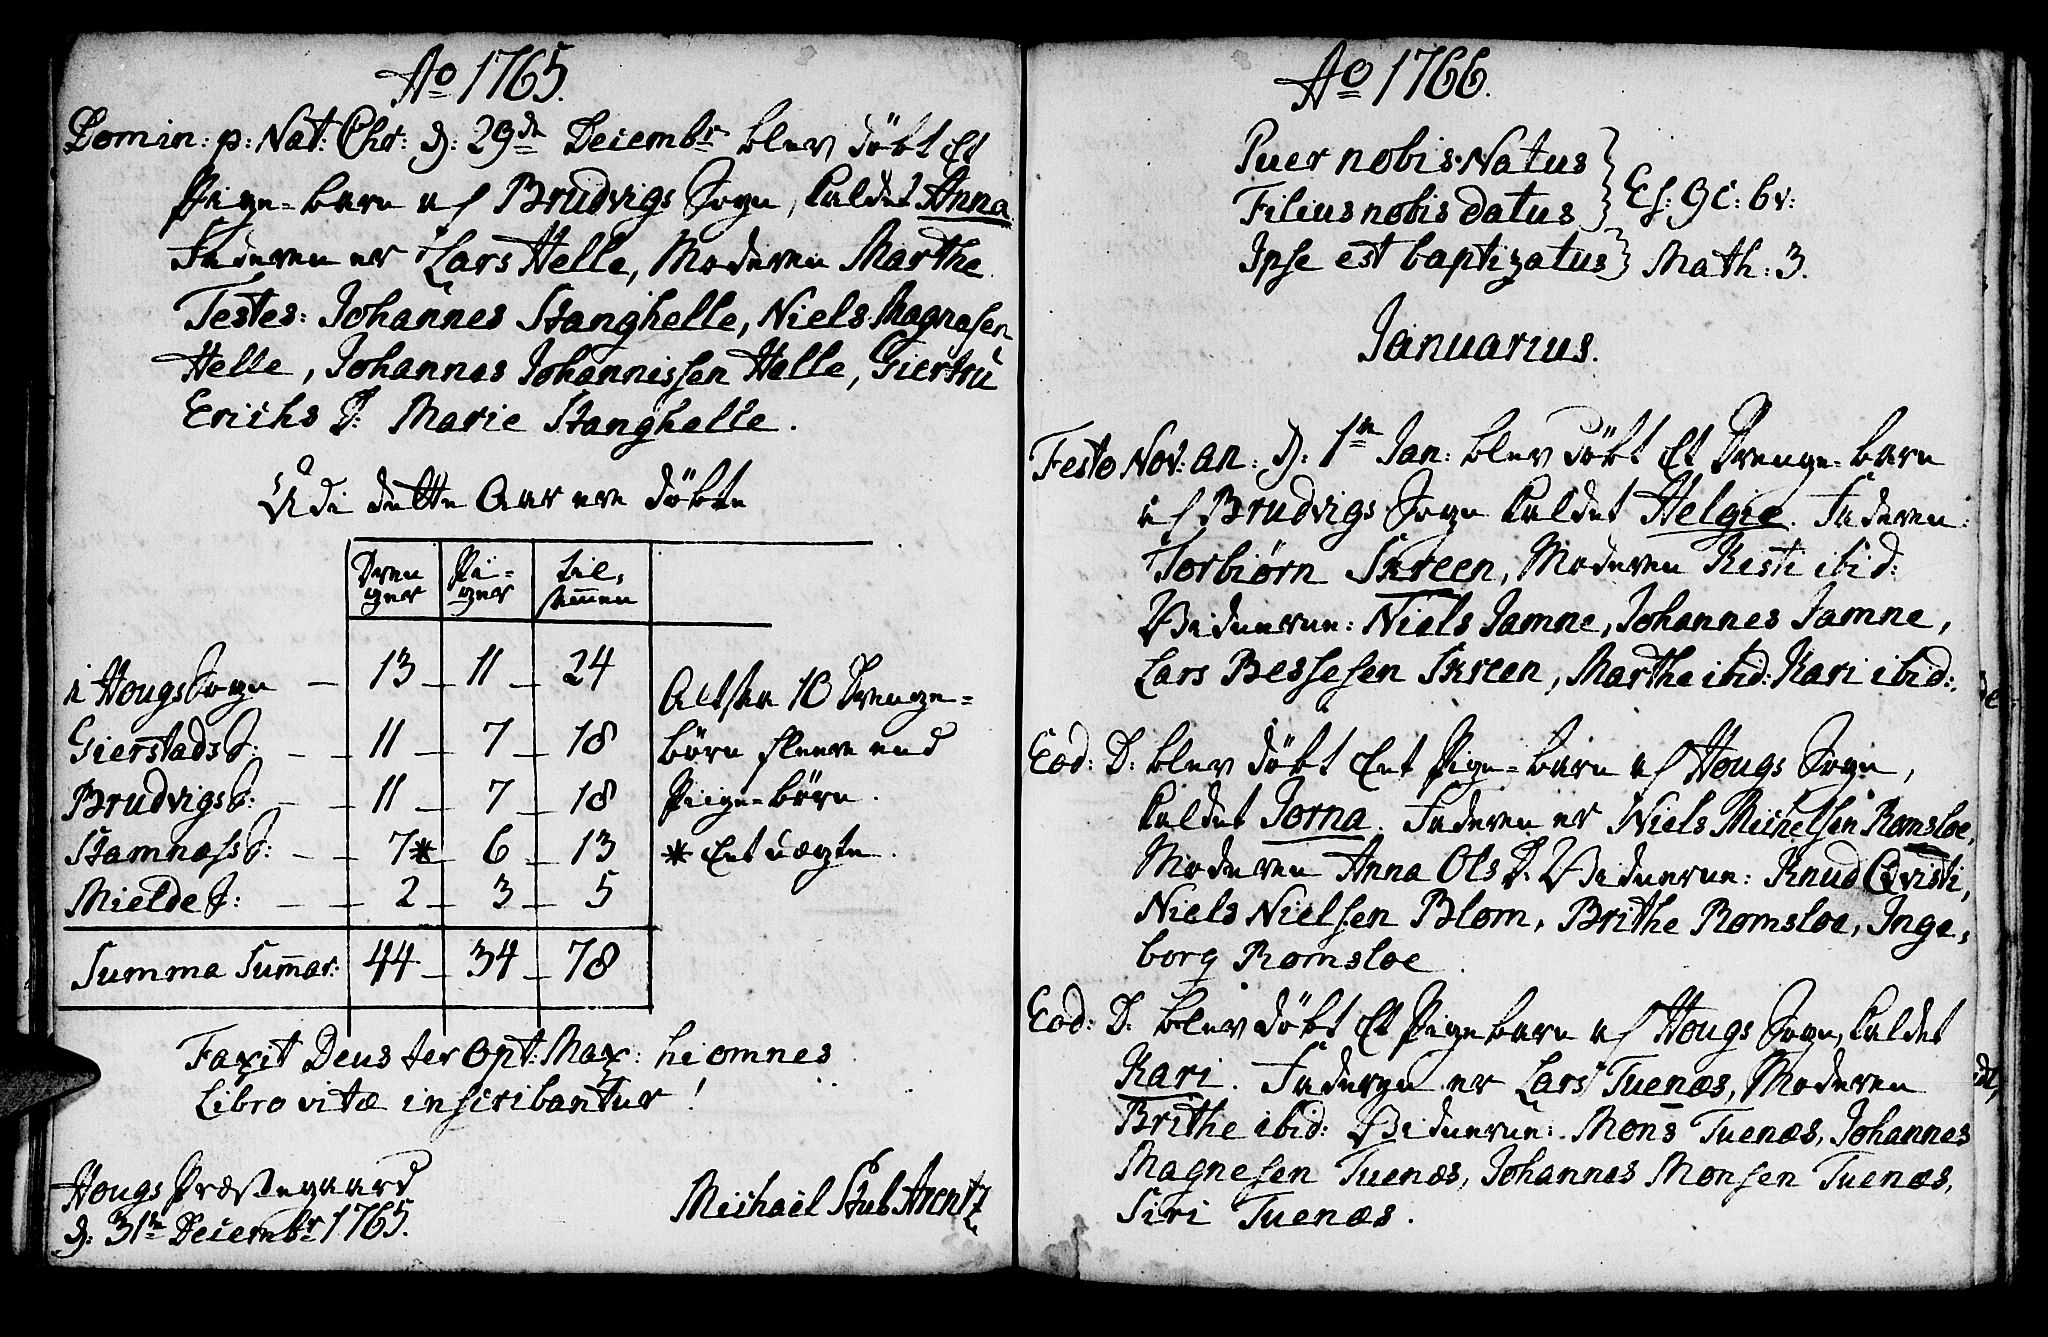 Ao 1765.
Domin: p: Nat: Chr: d: 29de Decembr blev döbt Et
Pige-barn af Brudvigs Sogn, kaldet Anna
Faderen er Lars Helle, Moderen Marthe
Testes: Johannes Stanghelle, Niels Magnesen
Helle, Johannes Johannissen Helle, Giertru
Erichs D: Marie Stanghelle.
Udi dette Aar ere döbte
Dren Pi- Til,
ger ger sammen
i Hougs Sogn 13 11 24
Gierstads S: 11 7 18
Brudvigs S: 11 7 18
Stamnæs S: 7* 6 13
Mielde S: 2 3 5
Summa Summar: 44 34 78
Altsaa 10 Drenge-
börn fleere end
Piige-börn.
* Eet uægte.
Faxit Deus ter Opt: Max: hi omnes
Libro vitæ inscribantur!
Hougs Præstegaard
d: 31te Decembr 1765.
Michael Stub Arentz
Ao 1766.
Puer nobis Natus
Filius nobis datus } Es: 9 c: 6 v:
Ipse est baptizatus } Math: 3.
Januarius.
Festo Nov: an: d: 1te Jan: blev döbt Et Drenge-barn
af Brudvigs Sogn kaldet Helgie. Faderen:
Torbiørn Skreen, Moderen Kisti ibid:
Vidnerne: Niels Jamne, Johannes Jamne,
Lars Bessesen Skreen, Marthe ibid: Kari ibid:
Eod: D: blev döbt Eet Pige-barn af Hougs Sogn,
kaldet Jorna. Faderen er Niels Michelsen Romsloe,
Moderen Anna Ols D. Vidnerne: Knud Qvisti,
Niels Nielsen Blom, Brithe Romsloe, Inge,
borg Romsloe.
Eod: D: blev döbt Et Pigebarn af Hougs Sogn, kaldet
Kari. Faderen er Lars Tuenæs, Moderen
Brithe ibid: Vidnerne: Mons Tuenæs, Johannes
Magnesen Tuenæs, Johannes Monsen Tuenæs,
Siri Tuenæs.